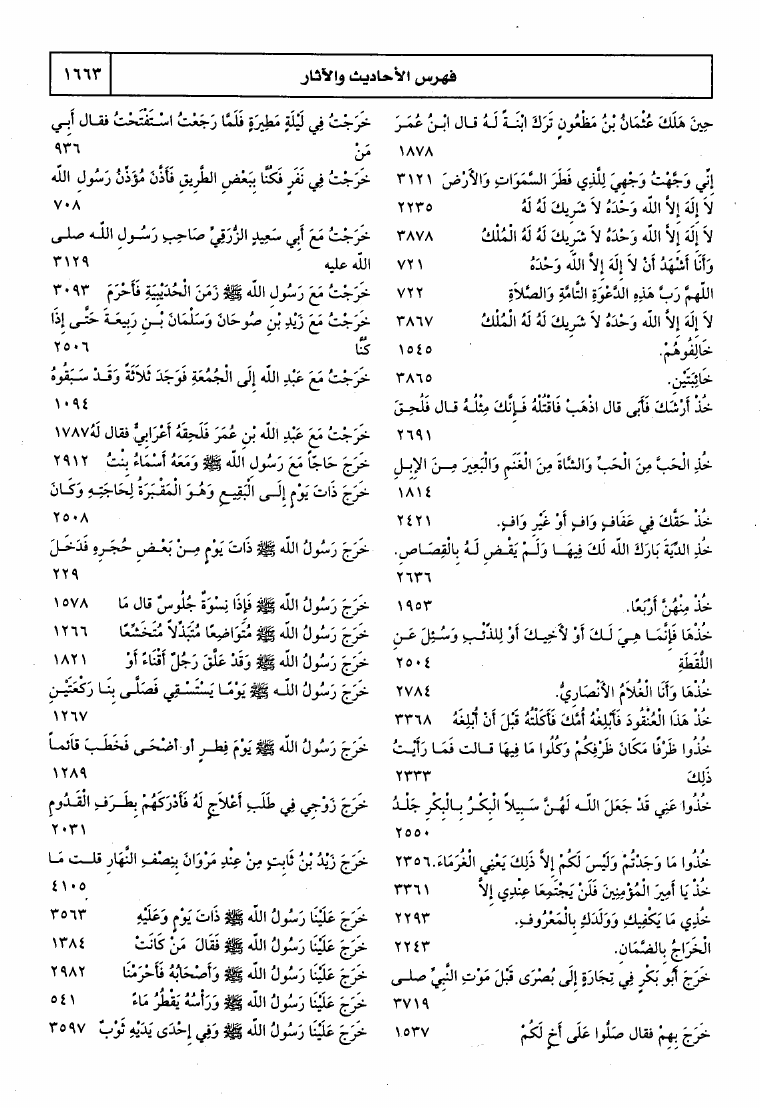 فهرس الأحاديث والآثار
١٦٦٣
حِينَ هَلَكَ عُثْمَانُ بْنُ مَظْعُونٍ تَرَكَ ابْنَةً لَهُ قال ابْنُ عُمَرَ
١٨٧٨
إِنِّي وَجَّهْتُ وَجْهِيَ لِلَّذِي فَطَرَ السَّمَوَاتِ وَالأَرْضَ ٣١٢١
لاَ إِلَهَ إِلاَّ الله وَحْدَهُ لاَ شَرِيكَ لَهُ لَهُ ٢٢٣٥
لاَ إِلَهَ إِلاَّ الله وَحْدَهُ لاَ شَرِيكَ لَهُ لَهُ الْمُلْكُ ٣٨٧٨
وَأَنَا أَشْهَدُ أَنْ لاَ إِلَهَ إِلاَّ الله وَحْدَهُ ٧٢١
اللهمَّ رَبَّ هَذِهِ الدَّعْوَةِ التَّامَّةِ وَالصَّلاَةِ ٧٢٢
لاَ إِلَهَ إِلاَّ الله وَحْدَهُ لاَ شَرِيكَ لَهُ لَهُ الْمُلْكُ ٣٨٦٧
خَالِفُوهُمْ. ١٥٤٥
خَائِبَتَيْنِ. ٣٨٦٥
خُذْ أَرْشَكَ فَأَبَى قال اذْهَبْ فَاقْتُلْهُ فَإِنَّكَ مِثْلُهُ قال فَلُحِقَ
٢٦٩١
خُذِ الْحَبَّ مِنَ الْحَبِّ وَالشَّاةَ مِنَ الْغَنَمِ وَالْبَعِيرَ مِنَ الإِبِلِ
١٨١٤
خُذْ حَقَّكَ فِي عَفَافٍ وَافٍ أَوْ غَيْرِ وَافٍ. ٢٤٢١
خُذِ الدِّيَةَ بَارَكَ الله لَكَ فِيهَا وَلَمْ يَقْضِ لَهُ بِالْقِصَاصِ.
٢٦٣٦
خُذْ مِنْهُنَّ أَرْبَعًا. ١٩٥٣
خُذْهَا فَإِنَّمَا هِيَ لَكَ أَوْ لأَخِيكَ أَوْ لِلذِّئْبِ وَسُئِلَ عَنِ
اللُّقَطَةِ ٢٥٠٤
خُذْهَا وَأَنَا الْغُلاَمُ الأَنْصَارِيُّ. ٢٧٨٤
خُذْ هَذَا الْعُنْقُودَ فَأَبْلِغْهُ أُمَّكَ فَأَكَلْتُهُ قَبْلَ أَنْ أُبْلِغَهُ ٣٣٦٨
خُذُوا ظَرْفًا مَكَانَ ظَرْفِكُمْ وَكُلُوا مَا فِيهَا قالت فَمَا رَأَيْتُ
ذَلِكَ ٢٣٣٣
خُذُوا عَنِي قَدْ جَعَلَ الله لَهُنَّ سَبِيلاً الْبِكْرُ بِالْبِكْرِ جَلْدُ
٢٥٥٠
خُذُوا مَا وَجَدْتُمْ وَلَيْسَ لَكُمْ إِلاَّ ذَلِكَ يَعْنِي الْغُرَمَاءَ. ٢٣٥٦
خُذْ يَا أَمِيرَ الْمُؤْمِنِينَ فَلَنْ يَجْتَمِعَا عِنْدِي إِلاَّ ٣٣٦١
خُذِي مَا يَكْفِيكِ وَوَلَدَكِ بِالْمَعْرُوفِ. ٢٢٩٣
الْخَرَاجُ بِالضَّمَانِ. ٢٢٤٣
خَرَجَ أَبُو بَكْرٍ فِي تِجَارَةٍ إِلَى بُصْرَى قَبْلَ مَوْتِ النَّبِيِّ صلى
٣٧١٩
خَرَجَ بِهِمْ فقال صَلُّوا عَلَى أَخٍ لَكُمْ ١٥٣٧
خَرَجْتُ فِي لَيْلَةٍ مَطِيرَةٍ فَلَمَّا رَجَعْتُ اسْتَفْتَحْتُ فقال أَبِي
مَنْ ٩٣٦
خَرَجْتُ فِي نَفَرٍ فَكُنَّا بِبَعْضِ الطَّرِيقِ فَأَذَّنَ مُؤَذِّنُ رَسُولِ الله
٧٠٨
خَرَجْتُ مَعَ أَبِي سَعِيدٍ الزُّرَقِيِّ صَاحِبِ رَسُولِ الله صلى
الله عليه ٣١٢٩
خَرَجْتُ مَعَ رَسُولِ الله ﷺ زَمَنَ الْحُدَيْبِيَةِ فَأَحْرَمَ ٣٠٩٣
خَرَجْتُ مَعَ زَيْدِ بْنِ صُوحَانَ وَسَلْمَانَ بْنِ رَبِيعَةَ حَتَّى إِذَا
كُنَّا ٢٥٠٦
خَرَجْتُ مَعَ عَبْدِ الله إِلَى الْجُمُعَةِ فَوَجَدَ ثَلاَثَةً وَقَدْ سَبَقُوهُ
١٠٩٤
خَرَجْتُ مَعَ عَبْدِ الله بْنِ عُمَرَ فَلَحِقَهُ أَعْرَابِيٌّ فقال لَهُ ١٧٨٧
خَرَجَ حَاجًّا مَعَ رَسُولِ الله ﷺ وَمَعَهُ أَسْمَاءُ بِنْتُ ٢٩١٢
خَرَجَ ذَاتَ يَوْمٍ إِلَى الْبَقِيعِ وَهُوَ الْمَقْبَرَةُ لِحَاجَتِهِ وَكَانَ
٢٥٠٨
خَرَجَ رَسُولُ الله ﷺ ذَاتَ يَوْمٍ مِنْ بَعْضِ حُجَرِهِ فَدَخَلَ
٢٢٩
خَرَجَ رَسُولُ الله ﷺ فَإِذَا نِسْوَةٌ جُلُوسٌ قال مَا ١٥٧٨
خَرَجَ رَسُولُ الله ﷺ مُتَوَاضِعًا مُتَبَذِّلاً مُتَخَشِّعًا ١٢٦٦
خَرَجَ رَسُولُ الله ﷺ وَقَدْ عَلَّقَ رَجُلٌ أَقْنَاءً أَوْ ١٨٢١
خَرَجَ رَسُولُ الله ﷺ يَوْمًا يَسْتَسْقِي فَصَلَّى بِنَا رَكْعَتَيْنِ
١٢٦٧
خَرَجَ رَسُولُ الله ﷺ يَوْمَ فِطْرٍ أو أَضْحَى فَخَطَبَ قَائماً
١٢٨٩
خَرَجَ زَوْجِي فِي طَلَبِ أَعْلاَجٍ لَهُ فَأَدْرَكَهُمْ بِطَرَفِ الْقَدُومِ
٢٠٣١
خَرَجَ زَيْدُ بْنُ ثَابِتٍ مِنْ عِنْدِ مَرْوَانَ بِنِصْفِ النَّهَارِ قلت مَا
٤١٠٥
خَرَجَ عَلَيْنَا رَسُولُ الله ﷺ ذَاتَ يَوْمٍ وَعَلَيْهِ ٣٥٦٣
خَرَجَ عَلَيْنَا رَسُولُ الله ﷺ فَقَالَ مَنْ كَانَتْ ١٣٨٤
خَرَجَ عَلَيْنَا رَسُولُ الله ﷺ وَأَصْحَابُهُ فَأَحْرَمْنَا ٢٩٨٢
خَرَجَ عَلَيْنَا رَسُولُ الله ﷺ وَرَأْسُهُ يَقْطُرُ مَاءً ٥٤١
خَرَجَ عَلَيْنَا رَسُولُ الله ﷺ وَفِي إِحْدَى يَدَيْهِ ثَوْبٌ ٣٥٩٧